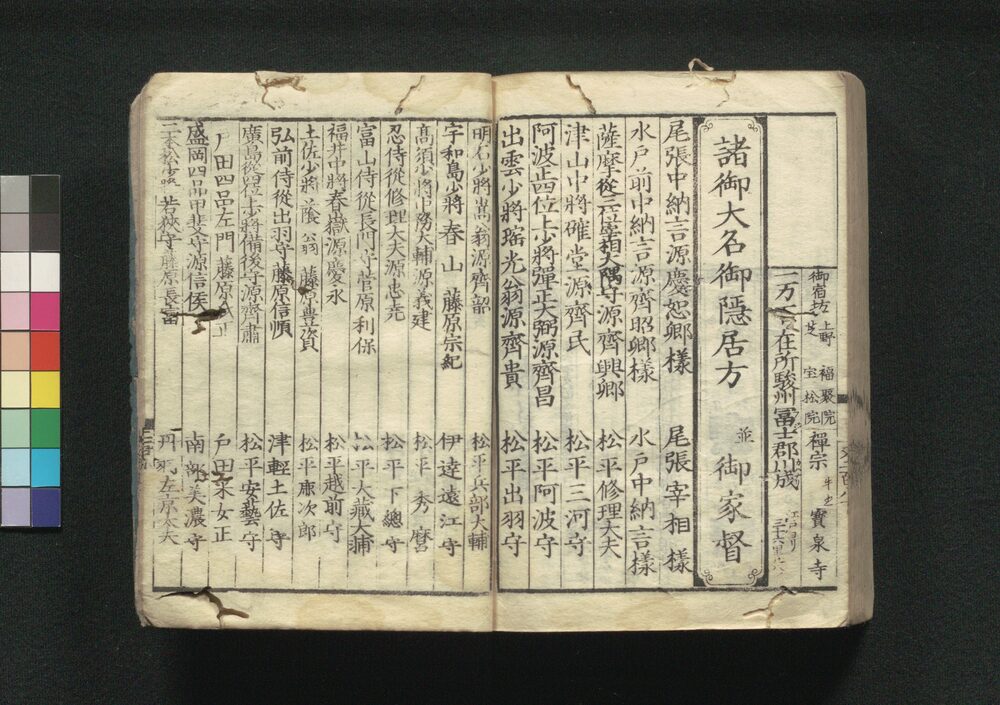 御宿坊 上野 福聚院
芝 宝松院
禅宗 牛込 寳泉寺
一万石 在所駿州冨士郡川成
諸御大名御隠居方 並 御家督
尾張中納言源慶恕卿様 尾張宰相様
水戸前中納言源齊昭卿様 水戸中納言様
薩摩從三位宰相大隅守源齊興卿 松平修理大夫
津山中將確堂源齊民 松平三河守
阿波正四位上少將彈正大弼源齊昌 松平阿波守
出雲少將瑶光翁源齊貴 松平出羽守
明石少將 翁源齊韶 松平兵部大輔
宇和島少將春山 藤原宗紀 伊達遠江守
髙須少將中務大輔源義建 松平秀麿
忍侍從修理大夫源忠尭 松平下總守
富山侍從長門守菅原利保 松平大藏大輔
福井中將春嶽源慶永 松平越前守
土佐少將 蔭翁 藤原豊資 松平康次郎
弘前侍從出羽守藤原信順 津輕土佐守
廣島從四位上少將備後守源齊肅 松平安藝守
戸田四品左門 藤原 戸田采女正
盛岡四品甲斐守源信侯 南部美濃守
二本松 若狹守藤原長富 丹羽左京大夫